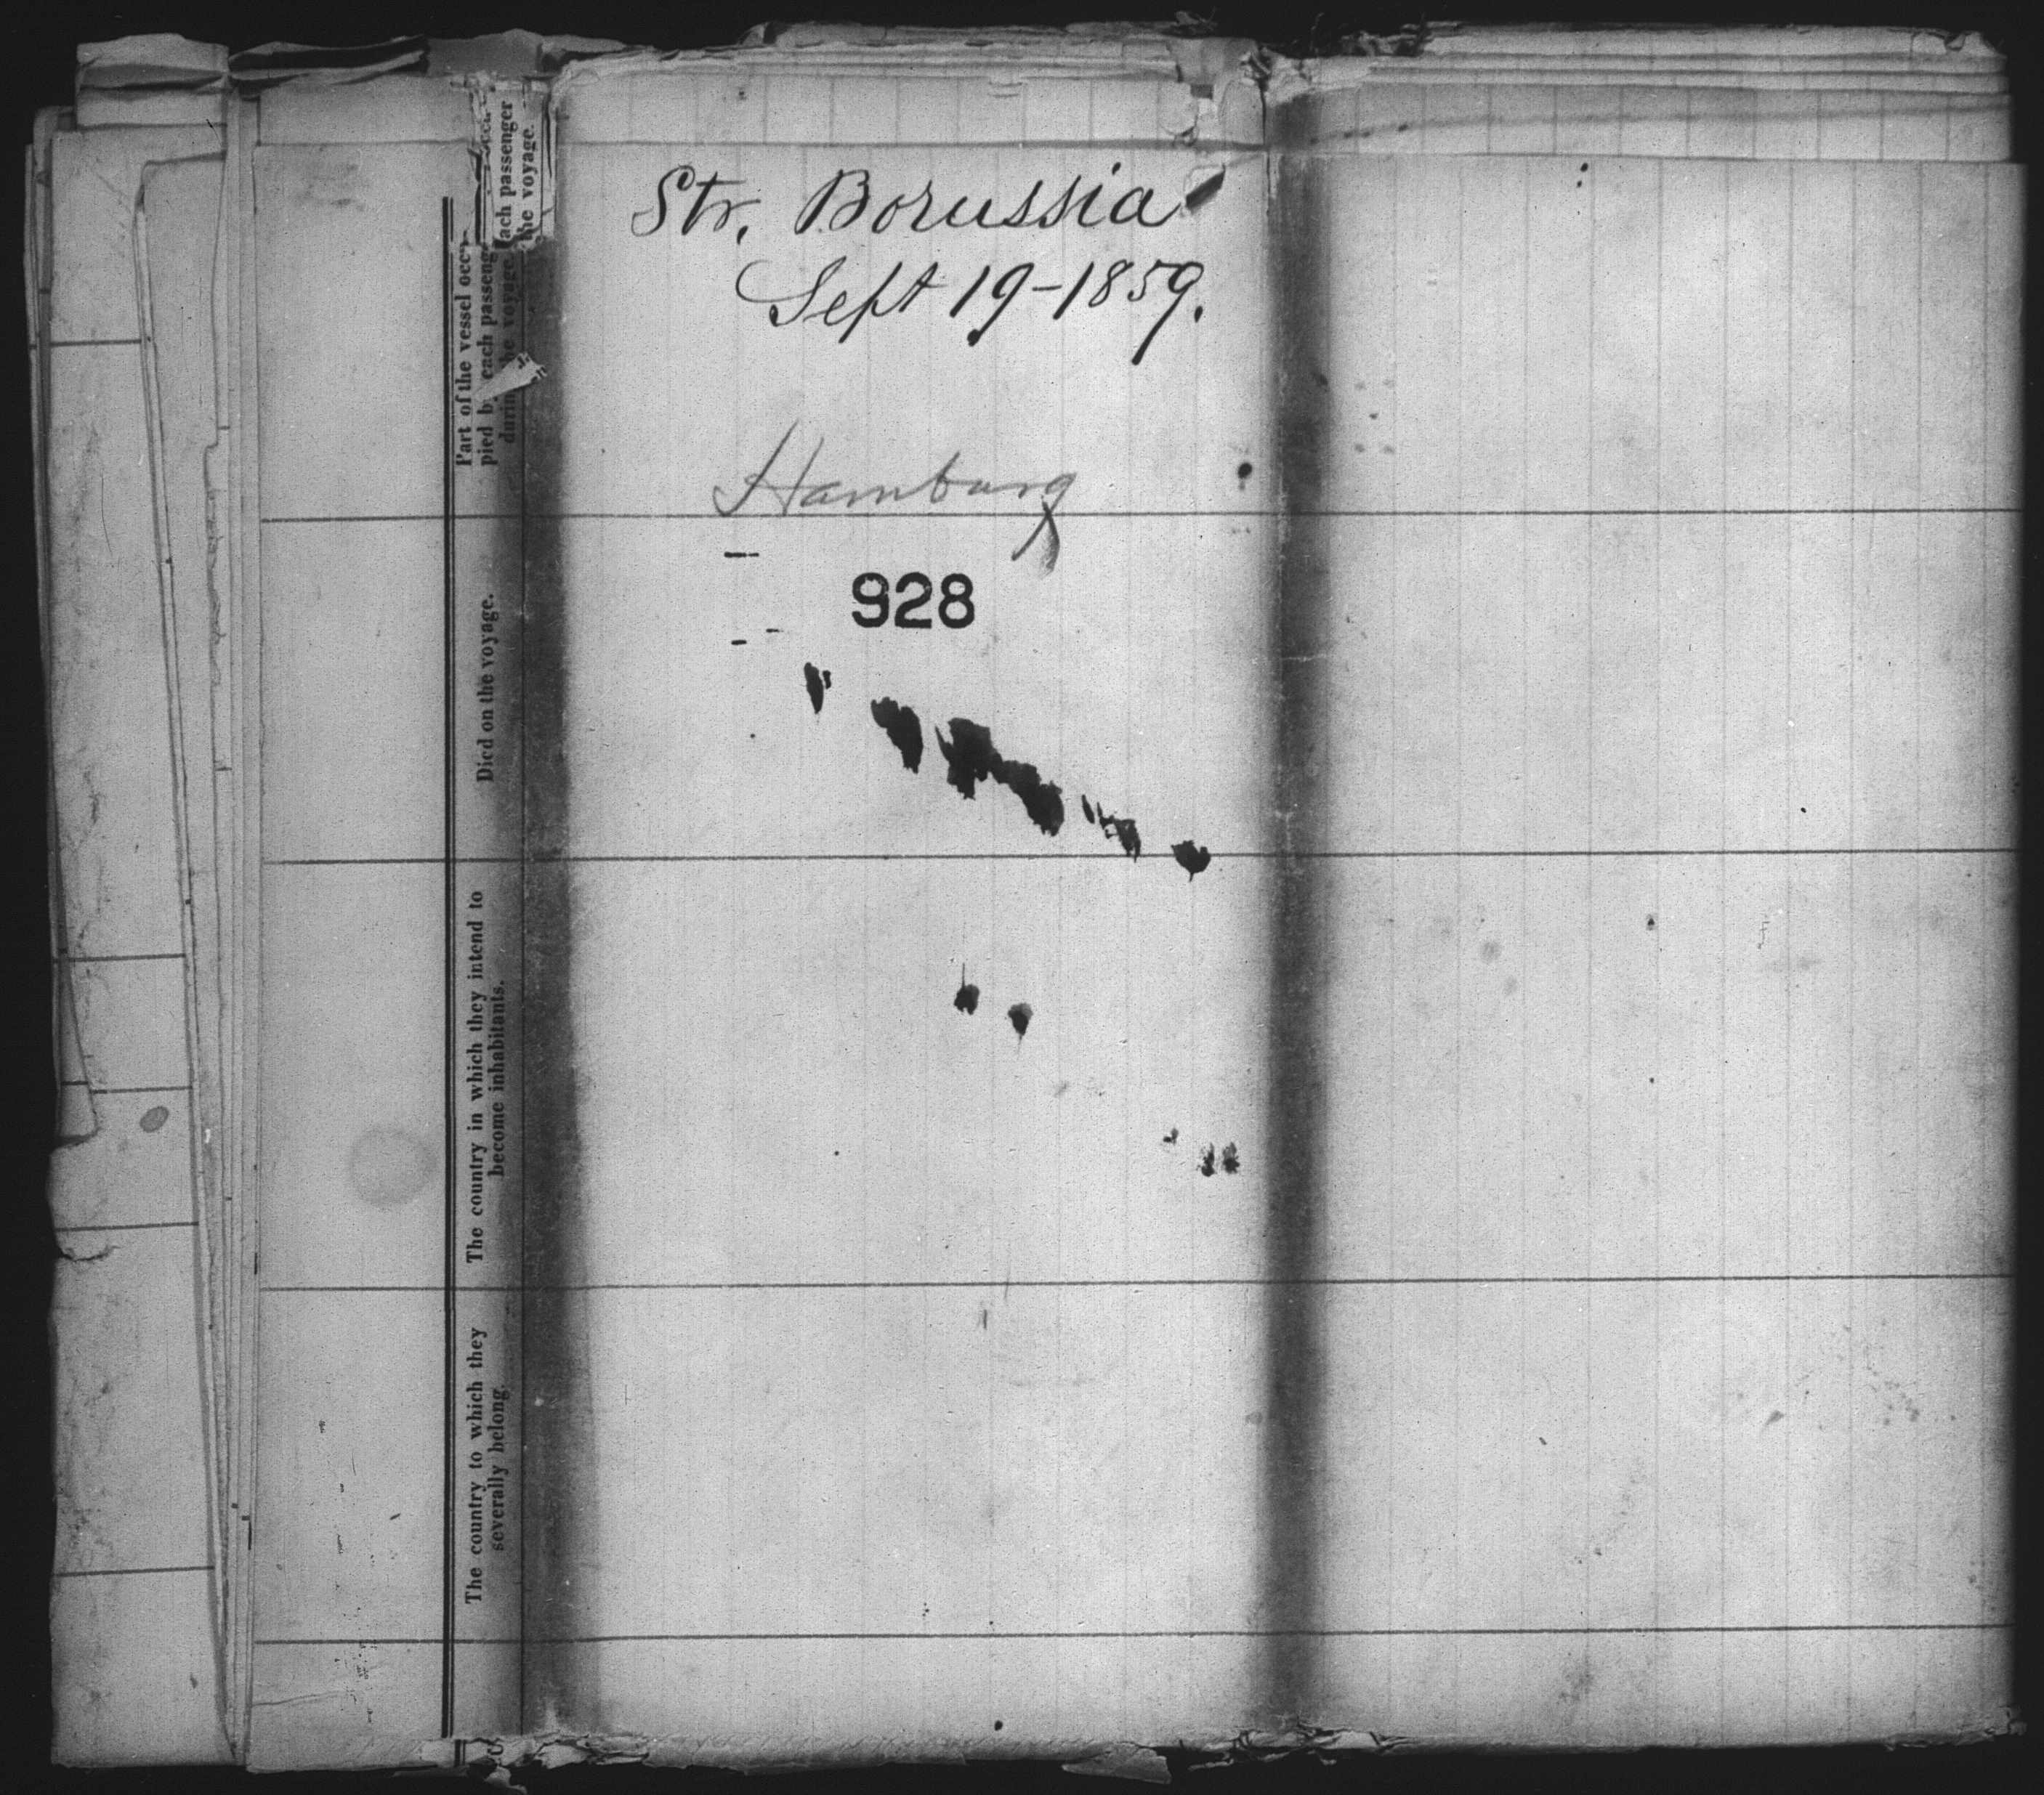 Str. Borussia
Sept 19-1859.
Hamburg
928
Part of the vessel occu-
pied by each passenger
during the voyage.
each passenger
the voyage.
Died on the voyage.
The country in which they intend to
become inhabitants.
The country to which they
severally belong.